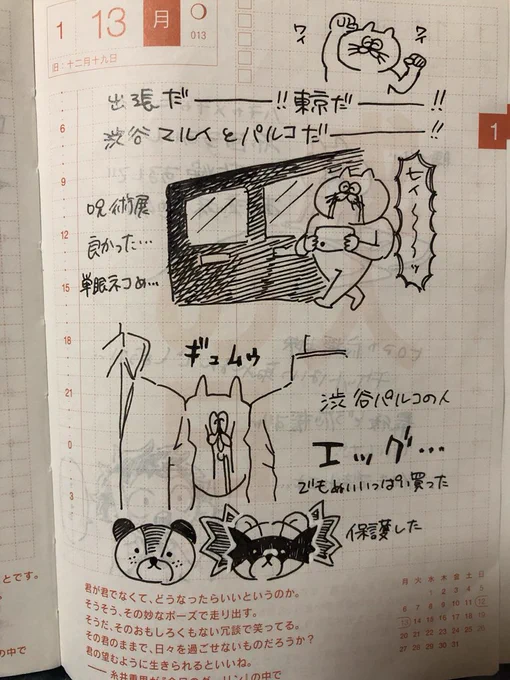 1 13 月
013
旧:十二月十九日
ワイ
ワイ
出張だー!!東京だー!!
渋谷マルイとパルコだー!!
1
6
9
12
15
18
21
0
3
呪術展
良かった…
単眼ネコめ…
ギュムゥ
渋谷パルコの人
エッグ…
でもぬいいっぱい買った
保護した
とです。
君が君でなくて、どうなったらいいというのか。
そうそう、その妙なポーズで走り出す。
そうだ、そのおもしろくもない冗談で笑ってる。
その君のままで、日々を過ごせないものだろうか?
君の望むように生きられるといいね。
の中で
月 火 水 木 金 土 日
1 2 3 4 5
6 7 8 9 10 11 12
13 14 15 16 17 18 19
20 21 22 23 24 25 26
27 28 29 30 31